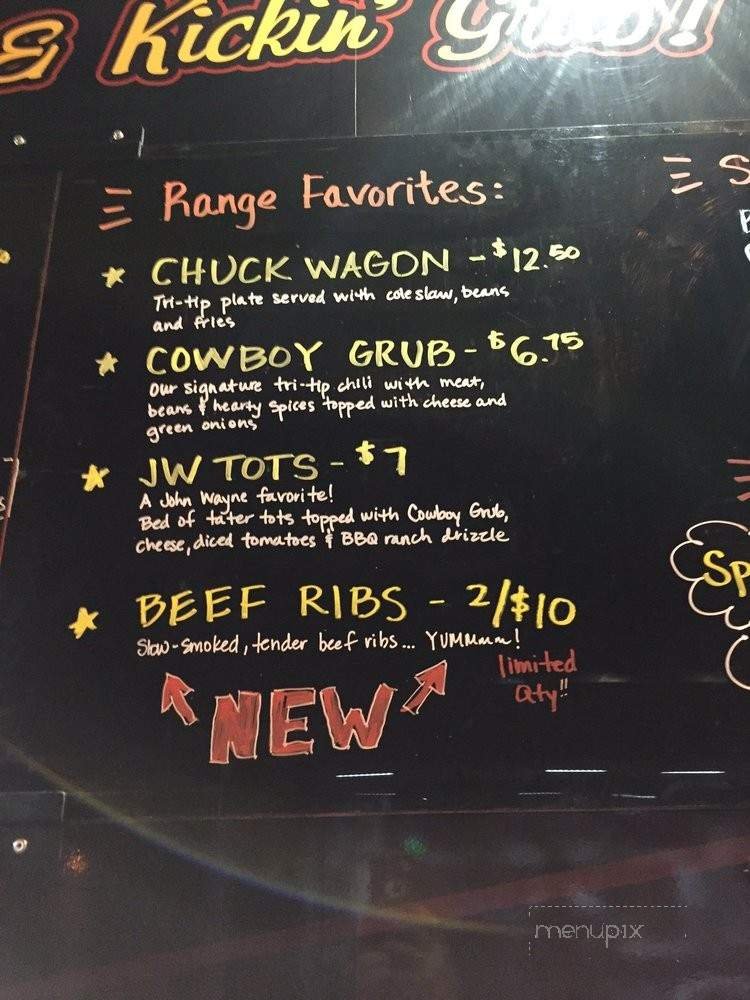 & Kickin' Grub!
Range Favorites:
CHUCK WAGON - $12.50
Tri-tip plate served with coleslaw, beans
and fries
COWBOY GRUB - $6.75
Our signature tri-tip chili with meat,
beans & hearty spices topped with cheese and
green onions
JW TOTS - $7
A John Wayne favorite!
Bed of tater tots topped with Cowboy Grub,
cheese, diced tomatoes & BBQ ranch drizzle
BEEF RIBS - 2/$10
Slow-smoked, tender beef ribs... YUMMmm!
limited
Qty!!
NEW
S
Sp
menupix